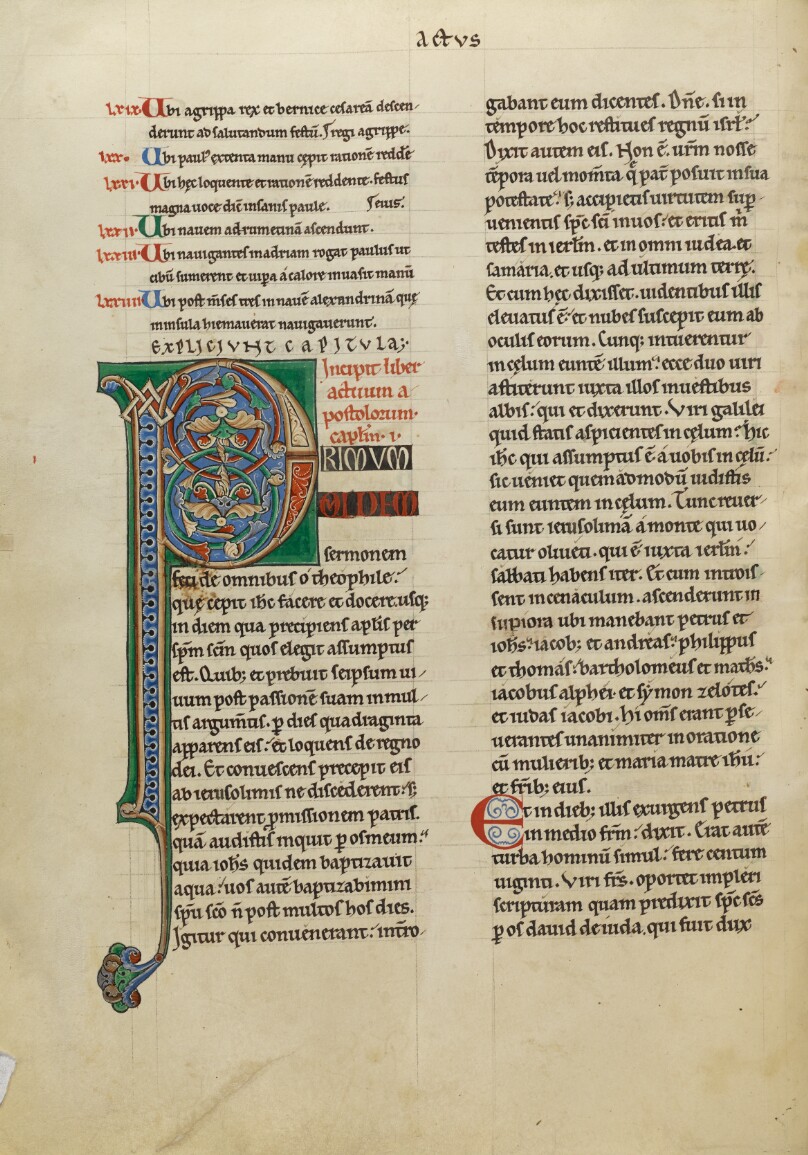 actus
lxix. Ubi agrippa rex et bernice cesareā descen-
derunt ad salutandum festū. ⁊ regi agrippe.
lxx. Ubi paulꝰ extenta manu cępit rationē redde
lxxi. Ubi hęc loquente et rationē reddente. festus
magna uoce dic̄ insanis paule.
lxxii. Ubi nauem adrumetinā ascendunt.
lxxiii. Ubi nauigantes madriam rogat paulus ut
cibū sumerent et uipa a calore inuasit manū
lxxiiii. Ubi post m̄ses tres in nauē alexandrinā quę
in insula hiemauerat nauigauerunt.
EXPLICIUNT CAPITULA;
Incipit liber
actuum a
postolorum.
cap̄lm. i.
PRIMUM
QUIDEM
sermonem
feci de omnibus o theophile.
quę cępit ih̄c facere et docere. usq;
in diem qua precipiens apl̄is per
sp̄m sc̄m quos elegit assumptus
est. Quib; et prebuit seipsum ui-
uum post passionē suam in mul-
tis argum̄tis. ꝑ dies quadraginta
apparens eis. et loquens de regno
dei. Et conuescens precepit eis
ab ierusolimis ne discederent. s;
expectarent ꝓmissionem patris.
quā audistis inquit ꝑ os meum.
quia ioh̄s quidem baptizauit
aqua. uos autē baptizabimini
sp̄u sc̄o n̄ post multos hos dies.
Igitur qui conuenerant. intro-
gabant eum dicentes. Dn̄e. si in
tempore hoc restitues regnū isrl̄.
Dixit autem eis. Non ē. ur̄m nosse
tēpora uel mom̄ta. q̨ pat̄ posuit in sua
potestate. s; accipietis uirtutem suꝑ-
uenientis sp̄c sc̄i in uos. et eritis m̄
testes in ierl̄m. et in omni iudea. et
samaria. et usq; ad ultimum terrę.
Et cum hęc dixisset. uidentibus illis
eleuatus ē. et nubes suscepit eum ab
oculis eorum. Cunq; intuerentur
in cęlum euntē illum. ecce duo uiri
astiterunt iuxta illos in uestibus
albis. qui et dixerunt. Viri galilei
quid statis aspicientes in cęlum. hic
ih̄c qui assumptus ē a uobis in cęlū.
sic ueniet quemadmodū uidistis
eum euntem in cęlum. Tunc reuer-
si sunt ierusolimā a monte qui uo-
catur oliueti. qui ē iuxta ierl̄m.
sabbati habens iter. Et cum introis-
sent in cenaculum. ascenderunt in
supiora ubi manebant petrus et
ioh̄s. iacob; et andreas. philippus
et thomas. bartholomeus et math̄s.
iacobus alphei. et symon zelotes.
et iudas iacobi. hi om̄s erant ꝑse-
uerantes unanimiter in oratione
cū mulierib; et maria matre ih̄u.
et fr̄ib; eius.
Et in dieb; illis exurgens petrus
in medio fr̄m. dixit. Erat autē
turba hominū simul. fere centum
uiginti. Viri fr̄s. oportet impleri
scripturam quam predixit sp̄c sc̄s
ꝑ os dauid de iuda. qui fuit dux